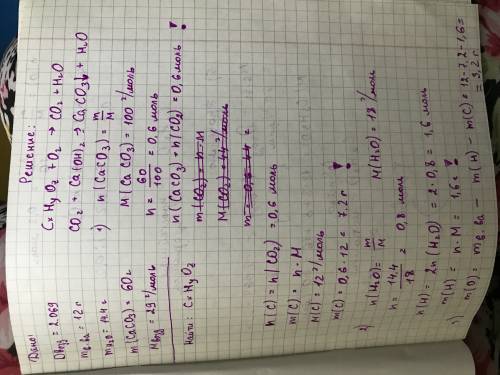 Дано:
Dвозд = 2.069
mв.ва = 12 г
mH₂O = 14.4 г
m(CaCO₃) = 60г
Mвозд = 29 г/моль
Найти: CxHyOz
Решение:
CxHyOz + O₂ → CO₂ + H₂O
CO₂ + Ca(OH)₂ → CaCO₃↓ + H₂O
1) n(CaCO₃) = m/M
M(CaCO₃) = 100 г/моль
n = 60/100 = 0,6 моль
n(CaCO₃) = n(CO₂) = 0,6 моль !
m(CO₂) = n·M
M(CO₂) = 44 г/моль
m = 0,6·44 =
n(C) = n(CO₂) = 0,6 моль
m(C) = n·M
M(C) = 12 г/моль
m(C) = 0,6·12 = 7,2 г !
2) n(H₂O) = m/M M(H₂O) = 18 г/моль
n = 14.4/18 = 0,8 моль
n(H) = 2n(H₂O) = 2·0,8 = 1,6 моль
m(H) = n·M = 1,6 г !
3) m(O) = mв.ва - m(H) - m(C) = 12-7,2-1,6 =
= 3,2 г